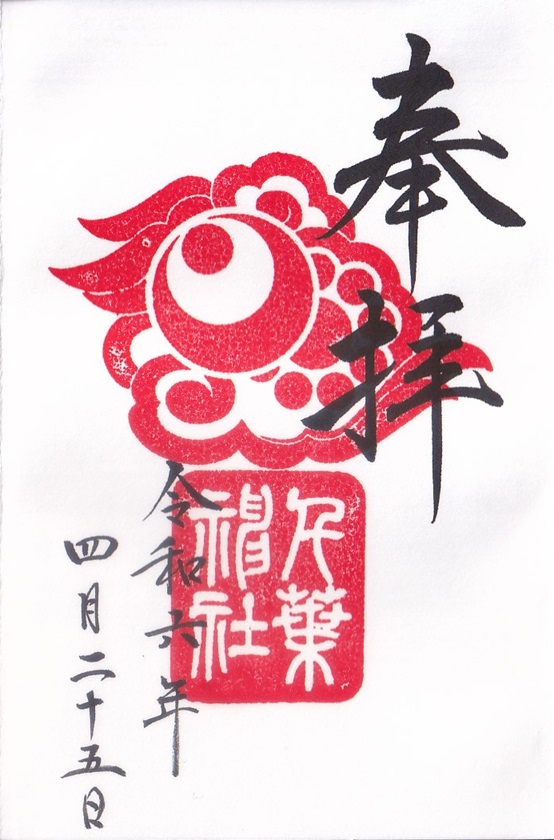 奉拝
千葉
神社
令和六年
四月二十五日